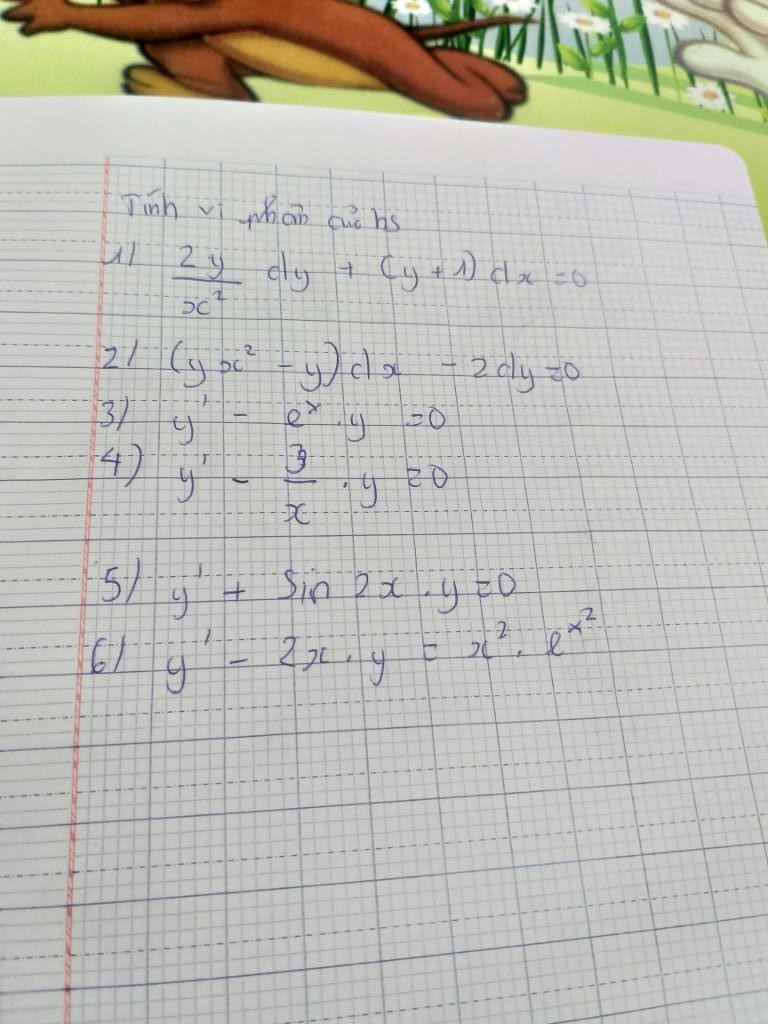 Tính vi phân của hs
1) 2y/x² dy + (y+1) dx = 0
2) (yx² - y) dx - 2dy = 0
3) y' - eˣ.y = 0
4) y' - 3/x . y = 0
5) y' + Sin 2x . y = 0
6) y' - 2x . y = x² . e^x²